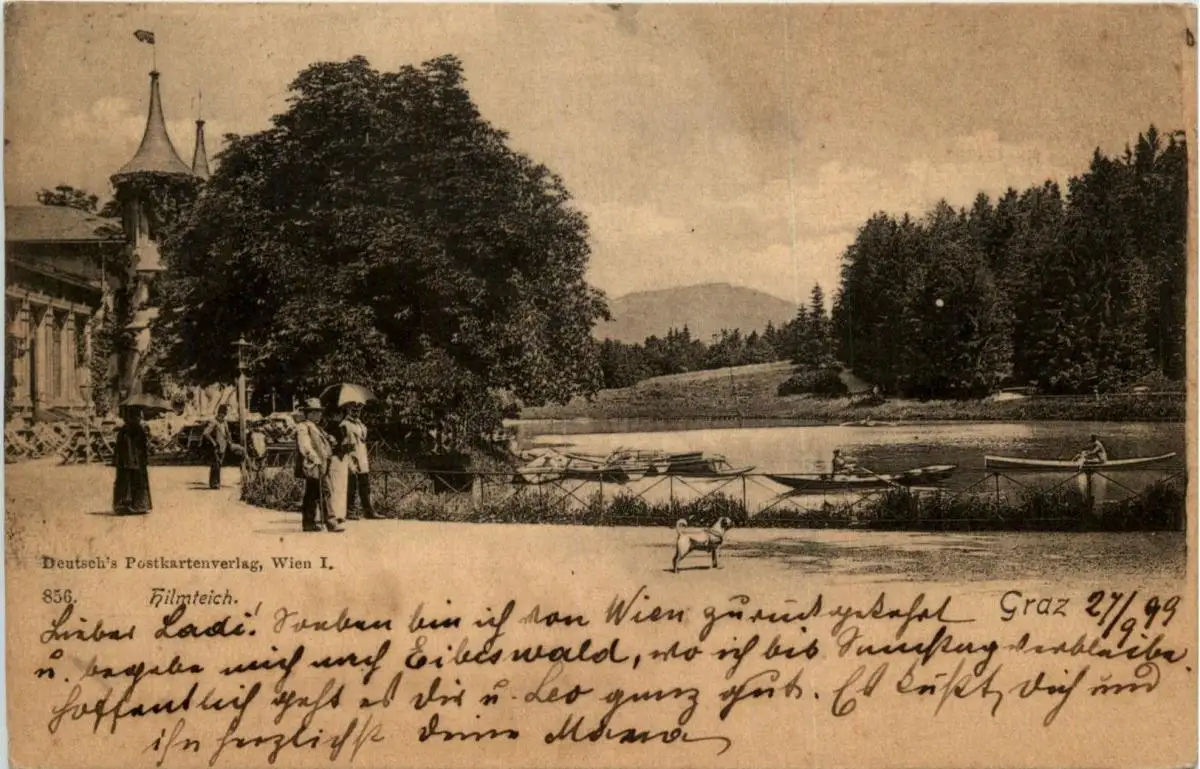 Deutsch's Postkartenverlag, Wien I.
856. Hilmteich.
Graz 27/9 99
Lieber Ladi! Soeben bin ich von Wien zurückgekehrt
u. begebe mich nach Eibiswald, wo ich bis Samstag verbleibe.
Hoffentlich geht es Dir u. Leo ganz gut. Es küßt Dich und
ihn herzlichst deine Mama